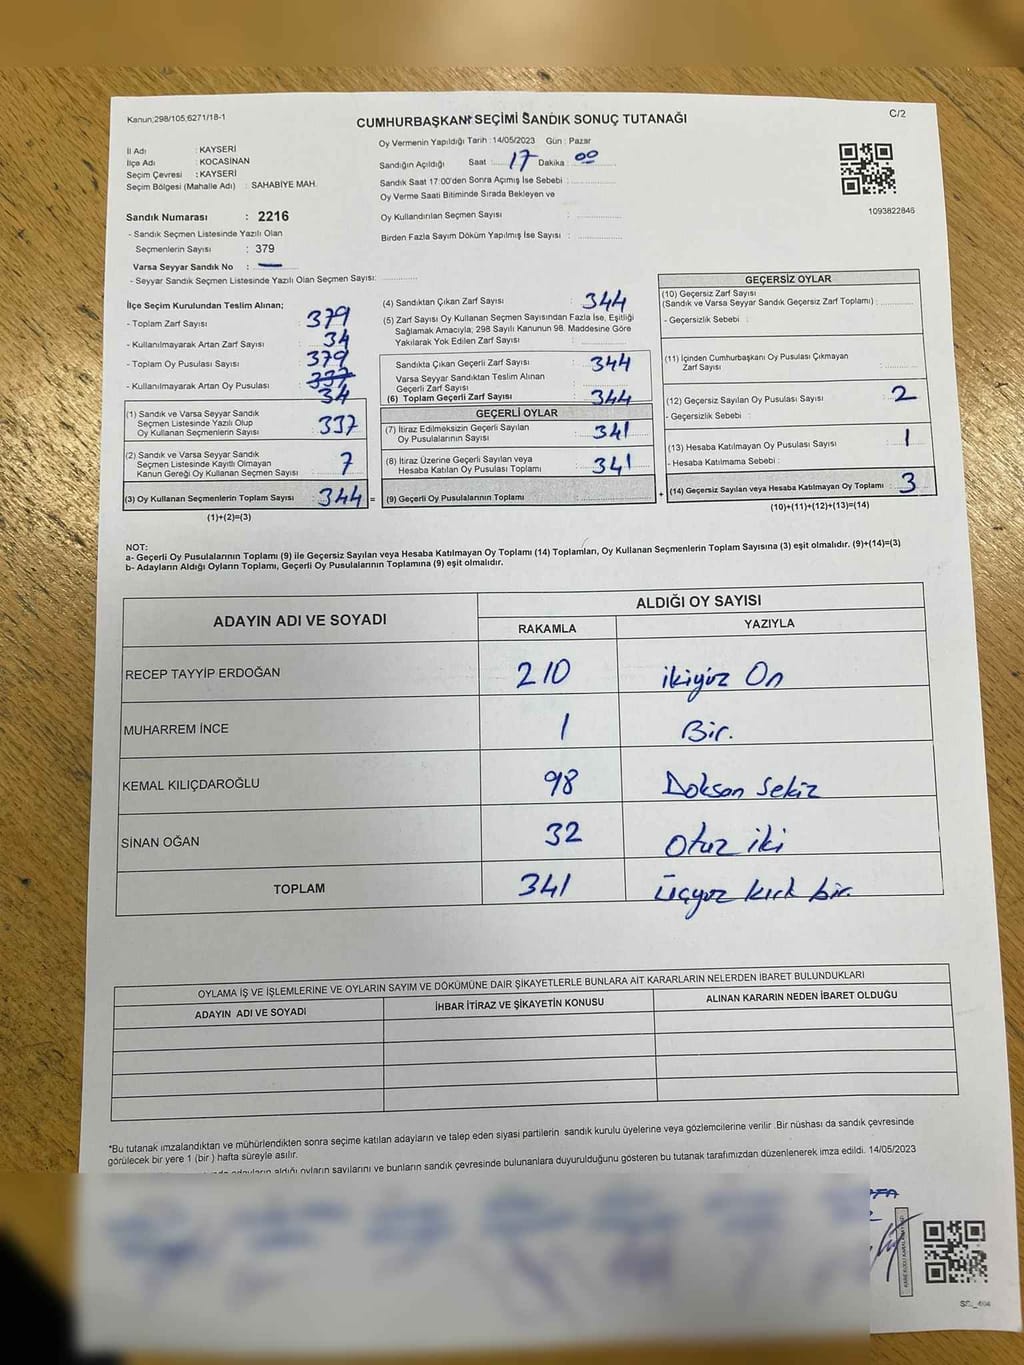 Kanun;298/105,6271/18-1
CUMHURBAŞKANI SEÇİMİ SANDIK SONUÇ TUTANAĞI
C/2
Oy Vermenin Yapıldığı Tarih : 14/05/2023 Gün : Pazar
İl Adı : KAYSERİ
İlçe Adı : KOCASİNAN
Seçim Çevresi : KAYSERİ
Seçim Bölgesi (Mahalle Adı) : SAHABİYE MAH.
Sandığın Açıldığı Saat : 17 Dakika : 00
Sandık Saat 17:00'den Sonra Açımış İse Sebebi :
Oy Verme Saati Bitiminde Sırada Bekleyen ve
Oy Kullandırılan Seçmen Sayısı :
Birden Fazla Sayım Döküm Yapılmış İse Sayısı :
1093822846
Sandık Numarası : 2216
- Sandık Seçmen Listesinde Yazılı Olan
Seçmenlerin Sayısı : 379
Varsa Seyyar Sandık No : —
- Seyyar Sandık Seçmen Listesinde Yazılı Olan Seçmen Sayısı:
İlçe Seçim Kurulundan Teslim Alınan;
- Toplam Zarf Sayısı : 379
- Kullanılmayarak Artan Zarf Sayısı : 34
- Toplam Oy Pusulası Sayısı : 379
- Kullanılmayarak Artan Oy Pusulası : 337
34
(1) Sandık ve Varsa Seyyar Sandık
Seçmen Listesinde Yazılı Olup
Oy Kullanan Seçmenlerin Sayısı : 337
(2) Sandık ve Varsa Seyyar Sandık
Seçmen Listesinde Kayıtlı Olmayan
Kanun Gereği Oy Kullanan Seçmen Sayısı : 7
(3) Oy Kullanan Seçmenlerin Toplam Sayısı : 344 =
(1)+(2)=(3)
(4) Sandıktan Çıkan Zarf Sayısı : 344
(5) Zarf Sayısı Oy Kullanan Seçmen Sayısından Fazla İse, Eşitliği
Sağlamak Amacıyla; 298 Sayılı Kanunun 98. Maddesine Göre
Yakılarak Yok Edilen Zarf Sayısı :
Sandıkta Çıkan Geçerli Zarf Sayısı : 344
Varsa Seyyar Sandıktan Teslim Alınan
Geçerli Zarf Sayısı :
(6) Toplam Geçerli Zarf Sayısı : 344
GEÇERLİ OYLAR
(7) İtiraz Edilmeksizin Geçerli Sayılan
Oy Pusulalarının Sayısı : 341
(8) İtiraz Üzerine Geçerli Sayılan veya
Hesaba Katılan Oy Pusulası Toplamı : 341
(9) Geçerli Oy Pusulalarının Toplamı : +
GEÇERSİZ OYLAR
(10) Geçersiz Zarf Sayısı
(Sandık ve Varsa Seyyar Sandık Geçersiz Zarf Toplamı) :
- Geçersizlik Sebebi :
(11) İçinden Cumhurbaşkanı Oy Pusulası Çıkmayan
Zarf Sayısı :
(12) Geçersiz Sayılan Oy Pusulası Sayısı : 2
- Geçersizlik Sebebi :
(13) Hesaba Katılmayan Oy Pusulası Sayısı : 1
- Hesaba Katılmama Sebebi :
(14) Geçersiz Sayılan veya Hesaba Katılmayan Oy Toplamı : 3
(10)+(11)+(12)+(13)=(14)
NOT:
a- Geçerli Oy Pusulalarının Toplamı (9) ile Geçersiz Sayılan veya Hesaba Katılmayan Oy Toplamı (14) Toplamları, Oy Kullanan Seçmenlerin Toplam Sayısına (3) eşit olmalıdır. (9)+(14)=(3)
b- Adayların Aldığı Oyların Toplamı, Geçerli Oy Pusulalarının Toplamına (9) eşit olmalıdır.
ADAYIN ADI VE SOYADI
ALDIĞI OY SAYISI
RAKAMLA YAZIYLA
RECEP TAYYİP ERDOĞAN 210 ikiyüz On
MUHARREM İNCE 1 Bir.
KEMAL KILIÇDAROĞLU 98 Doksan Sekiz
SİNAN OĞAN 32 Otuz iki
TOPLAM 341 Üçyüz kırk bir.
OYLAMA İŞ VE İŞLEMLERİNE VE OYLARIN SAYIM VE DÖKÜMÜNE DAİR ŞİKAYETLERLE BUNLARA AİT KARARLARIN NELERDEN İBARET BULUNDUKLARI
ADAYIN ADI VE SOYADI İHBAR İTİRAZ VE ŞİKAYETİN KONUSU ALINAN KARARIN NEDEN İBARET OLDUĞU
*Bu tutanak imzalandıktan ve mühürlendikten sonra seçime katılan adayların ve talep eden siyasi partilerin sandık kurulu üyelerine veya gözlemcilerine verilir .Bir nüshası da sandık çevresinde
görülecek bir yere 1 (bir ) hafta süreyle asılır.
adayların aldığı oyların sayılarını ve bunların sandık çevresinde bulunanlara duyurulduğunu gösteren bu tutanak tarafımızdan düzenlenerek imza edildi. 14/05/2023